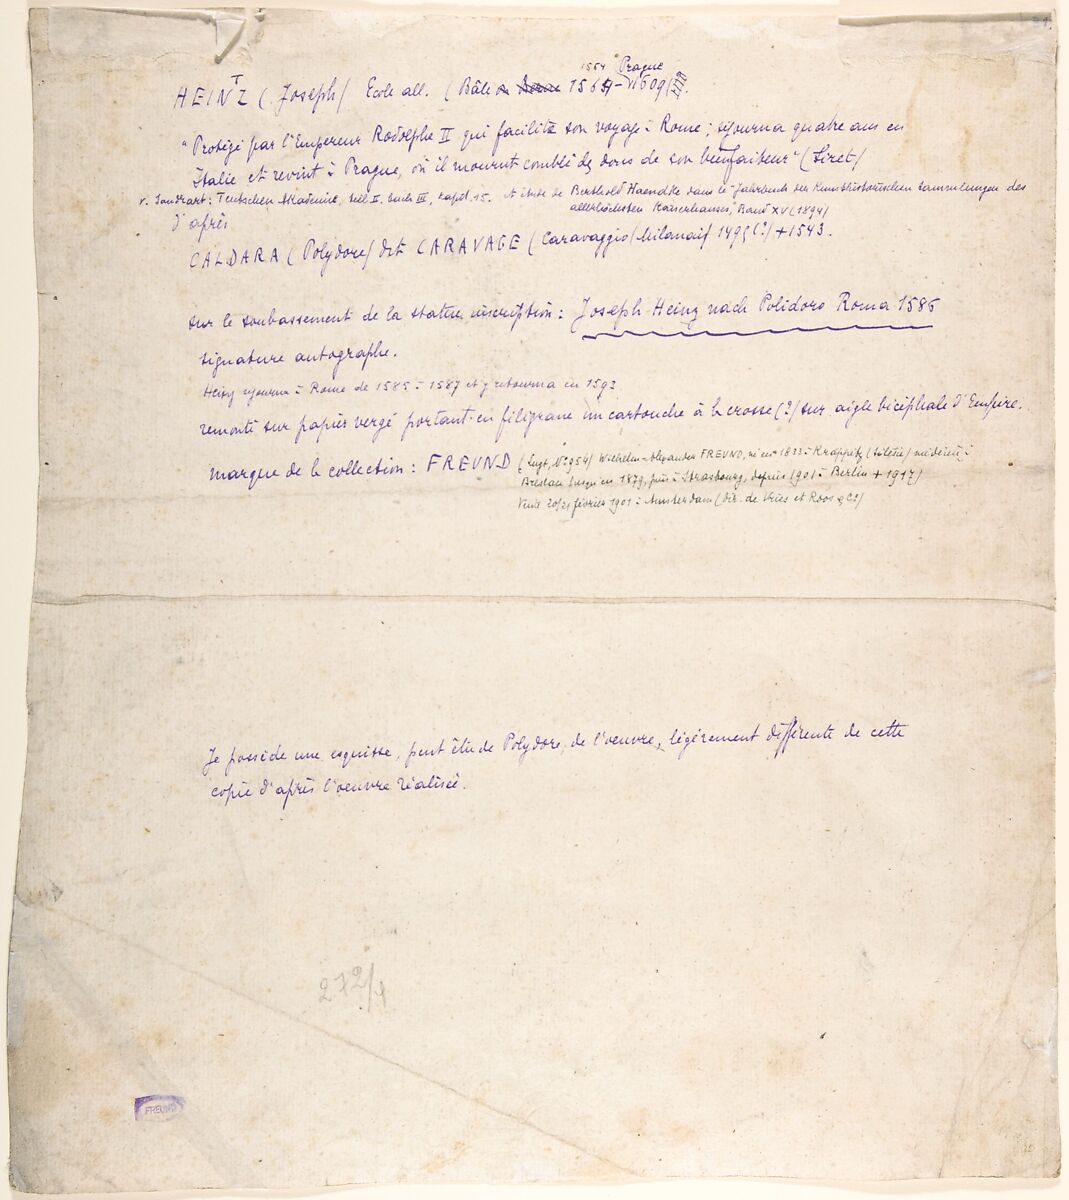 HEINTZ (Joseph) Ecole all. (Bâle 1564 - Prague 1609)
"Protégé par l'Empereur Rodolphe II qui facilita son voyage à Rome ; séjourna quatre ans en
Italie et revint à Prague, où il mourut comblé des dons de son bienfaiteur" (Siret)
v. Sandrart : Teutschen Akademie, teil II. buch III, kapit. 15. et étude de Berthold Haendke dans le "Jahrbuch der Kunsthistorischen Sammlungen des
allerhöchsten Kaiserhauses", Band XV (1894)
d'après
CALDARA (Polydore) dit CARAVAGE (Caravaggio (Milanais) 1495 (?) + 1543.
sur le soubassement de la statue inscription : Joseph Heinz nach Polidoro Roma 1586
signature autographe.
Heinz séjourna à Rome de 1585 à 1587 et y retourna en 1593
remonté sur papier vergé portant en filigrane un cartouche à la crosse (?) sur aigle bicéphale d'Empire.
marque de la collection : FREUND (Lugt, N° 954) Wilhelm-Alexander FREUND, né en 1833 à Krappitz (Silésie) médecin à
Breslau jusqu'en 1879, puis à Strasbourg, depuis 1901 à Berlin + 1917)
Vente 20/21 février 1901 à Amsterdam (dir. de Vries et Roos & Co)
Je possède une esquisse, peut être de Polydore, de l'oeuvre, légèrement différente de cette
copie d'après l'oeuvre réalisée.
272/1
FREUND